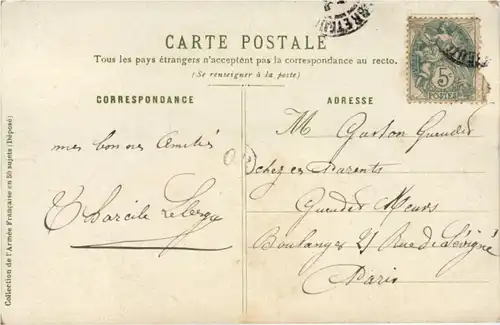 CARTE POSTALE
Tous les pays étrangers n'acceptent pas la correspondance au recto.
(Se renseigner à la poste)
CORRESPONDANCE
ADRESSE
Collection de l'Armée Française en 50 sujets (Déposé)
5c
POSTES
mes bonnes Amitiés
M Gaston
chez ces Parents
Boulanger 21 Rue de Sévigné
Paris